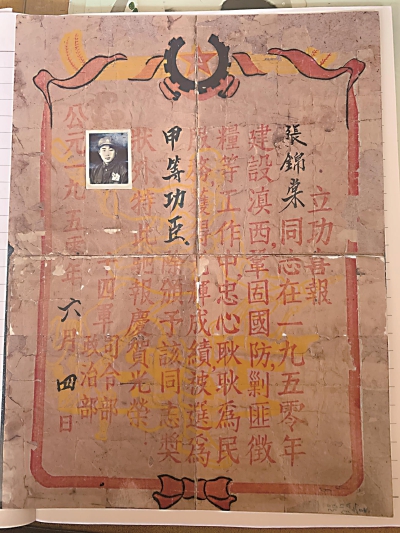 立功喜報
張錦同志在一九五零年
建設滇西,鞏固國防,剿匪徵
糧等工作中忠心耿耿為民
服務獲得輝成績,被選為
甲等功臣 除頒予該同志獎
狀外特此報慶賀光榮
四軍司令部
政治部
公元一九五零年六月四日